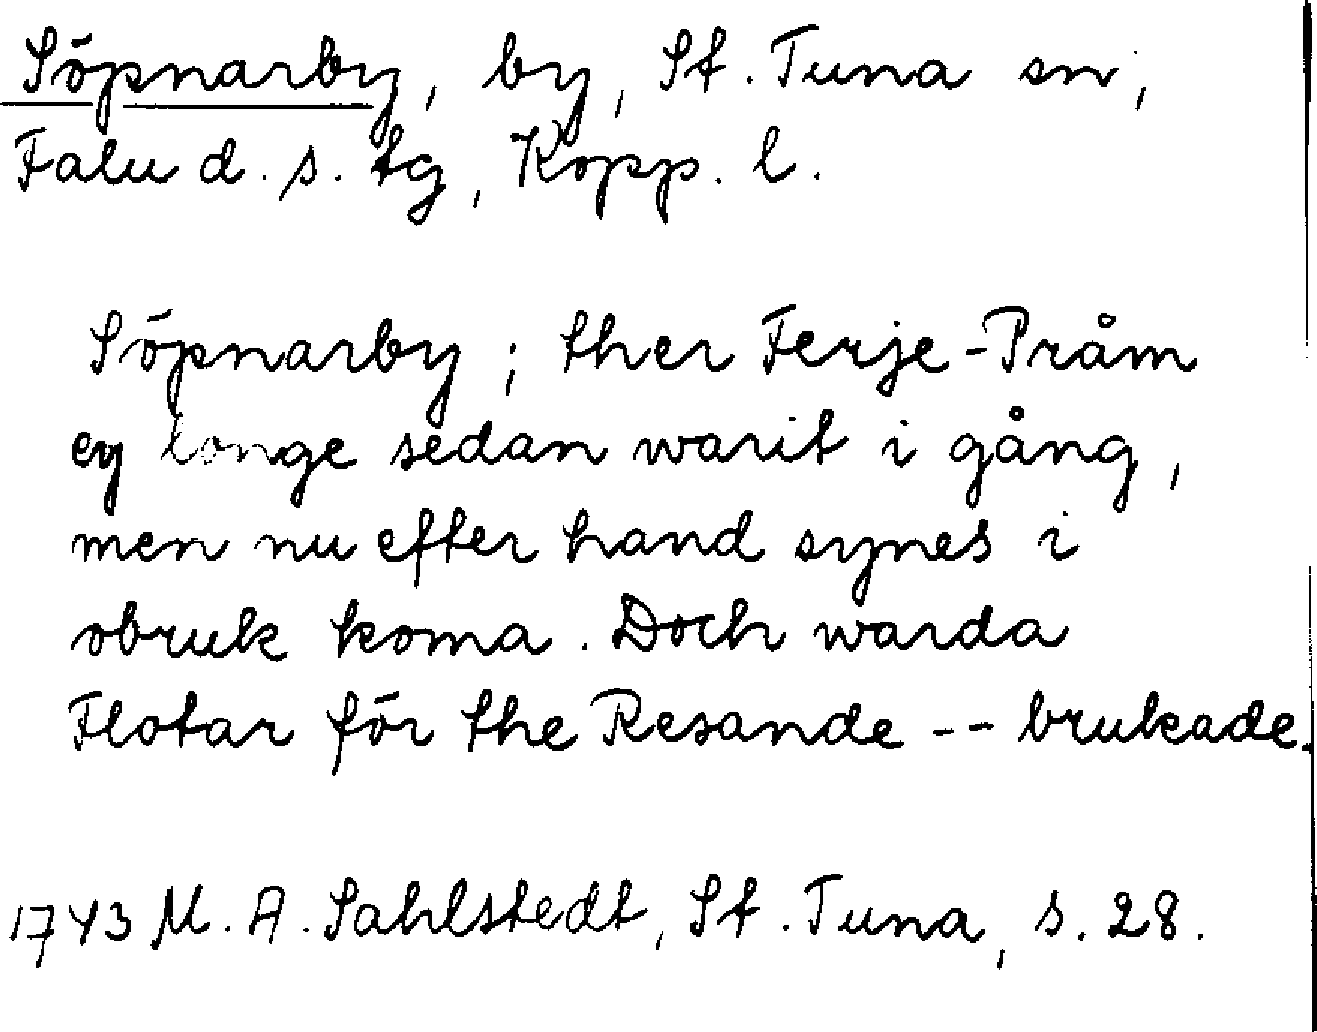 Söpnarby, by, St. Tuna sn,
Falu d. s. tg, Kopp. l.
Söpnarby; ther Ferje-Pråm
ey longe sedan warit i gång,
men nu efter hand synes i
obruk koma. Doch warda
Flotar för the Resande -- brukade.
1743 M. A. Sahlstedt, St. Tuna, s. 28.